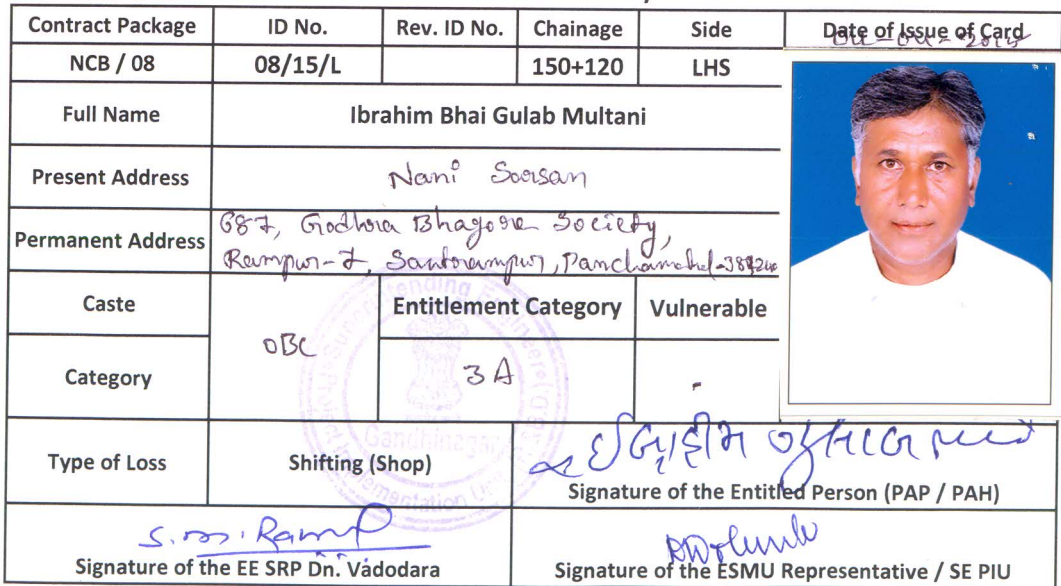 Contract Package ID No. Rev. ID No. Chainage Side Date of Issue of Card
NCB / 08 08/15/L 150+120 LHS
Full Name Ibrahim Bhai Gulab Multani
Present Address Nani Sarsan
Permanent Address 687, Godhra Bhagore Society,
Rampur-7, Santrampur, Panchamahal
Caste OBC Entitlement Category Vulnerable
Category 3A -
Gandhinagar
Type of Loss Shifting (Shop)
Signature of the Entitled Person (PAP / PAH)
Signature of the EE SRP Dn. Vadodara Signature of the ESMU Representative / SE PIU